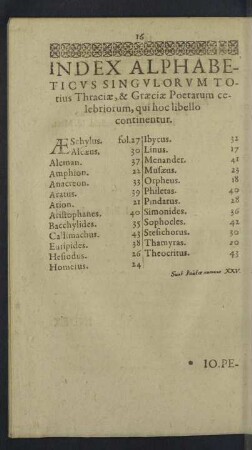 16
INDEX ALPHABE-
TICVS SINGVLORVM TO-
tius Thraciæ, & Græciæ Poetarum ce-
lebriorum, qui hoc libello
continentur.
ÆSchylus. fol.27
Alcæus. 30
Alcman. 37
Amphion. 22
Anacreon. 35
Aratus. 39
Arion. 21
Aristophanes. 40
Bacchylides. 35
Callimachus. 43
Euripides. 38
Hesiodus. 26
Homerus. 24
Ibycus. 32
Linus. 17
Menander. 42
Musæus. 23
Orpheus. 18
Philetas. 40
Pindarus. 28
Simonides. 36
Sophocles. 42
Stesichorus. 30
Thamyras. 20
Theocritus. 43
Sunt Poëtæ numero XXV.
IO.PE-